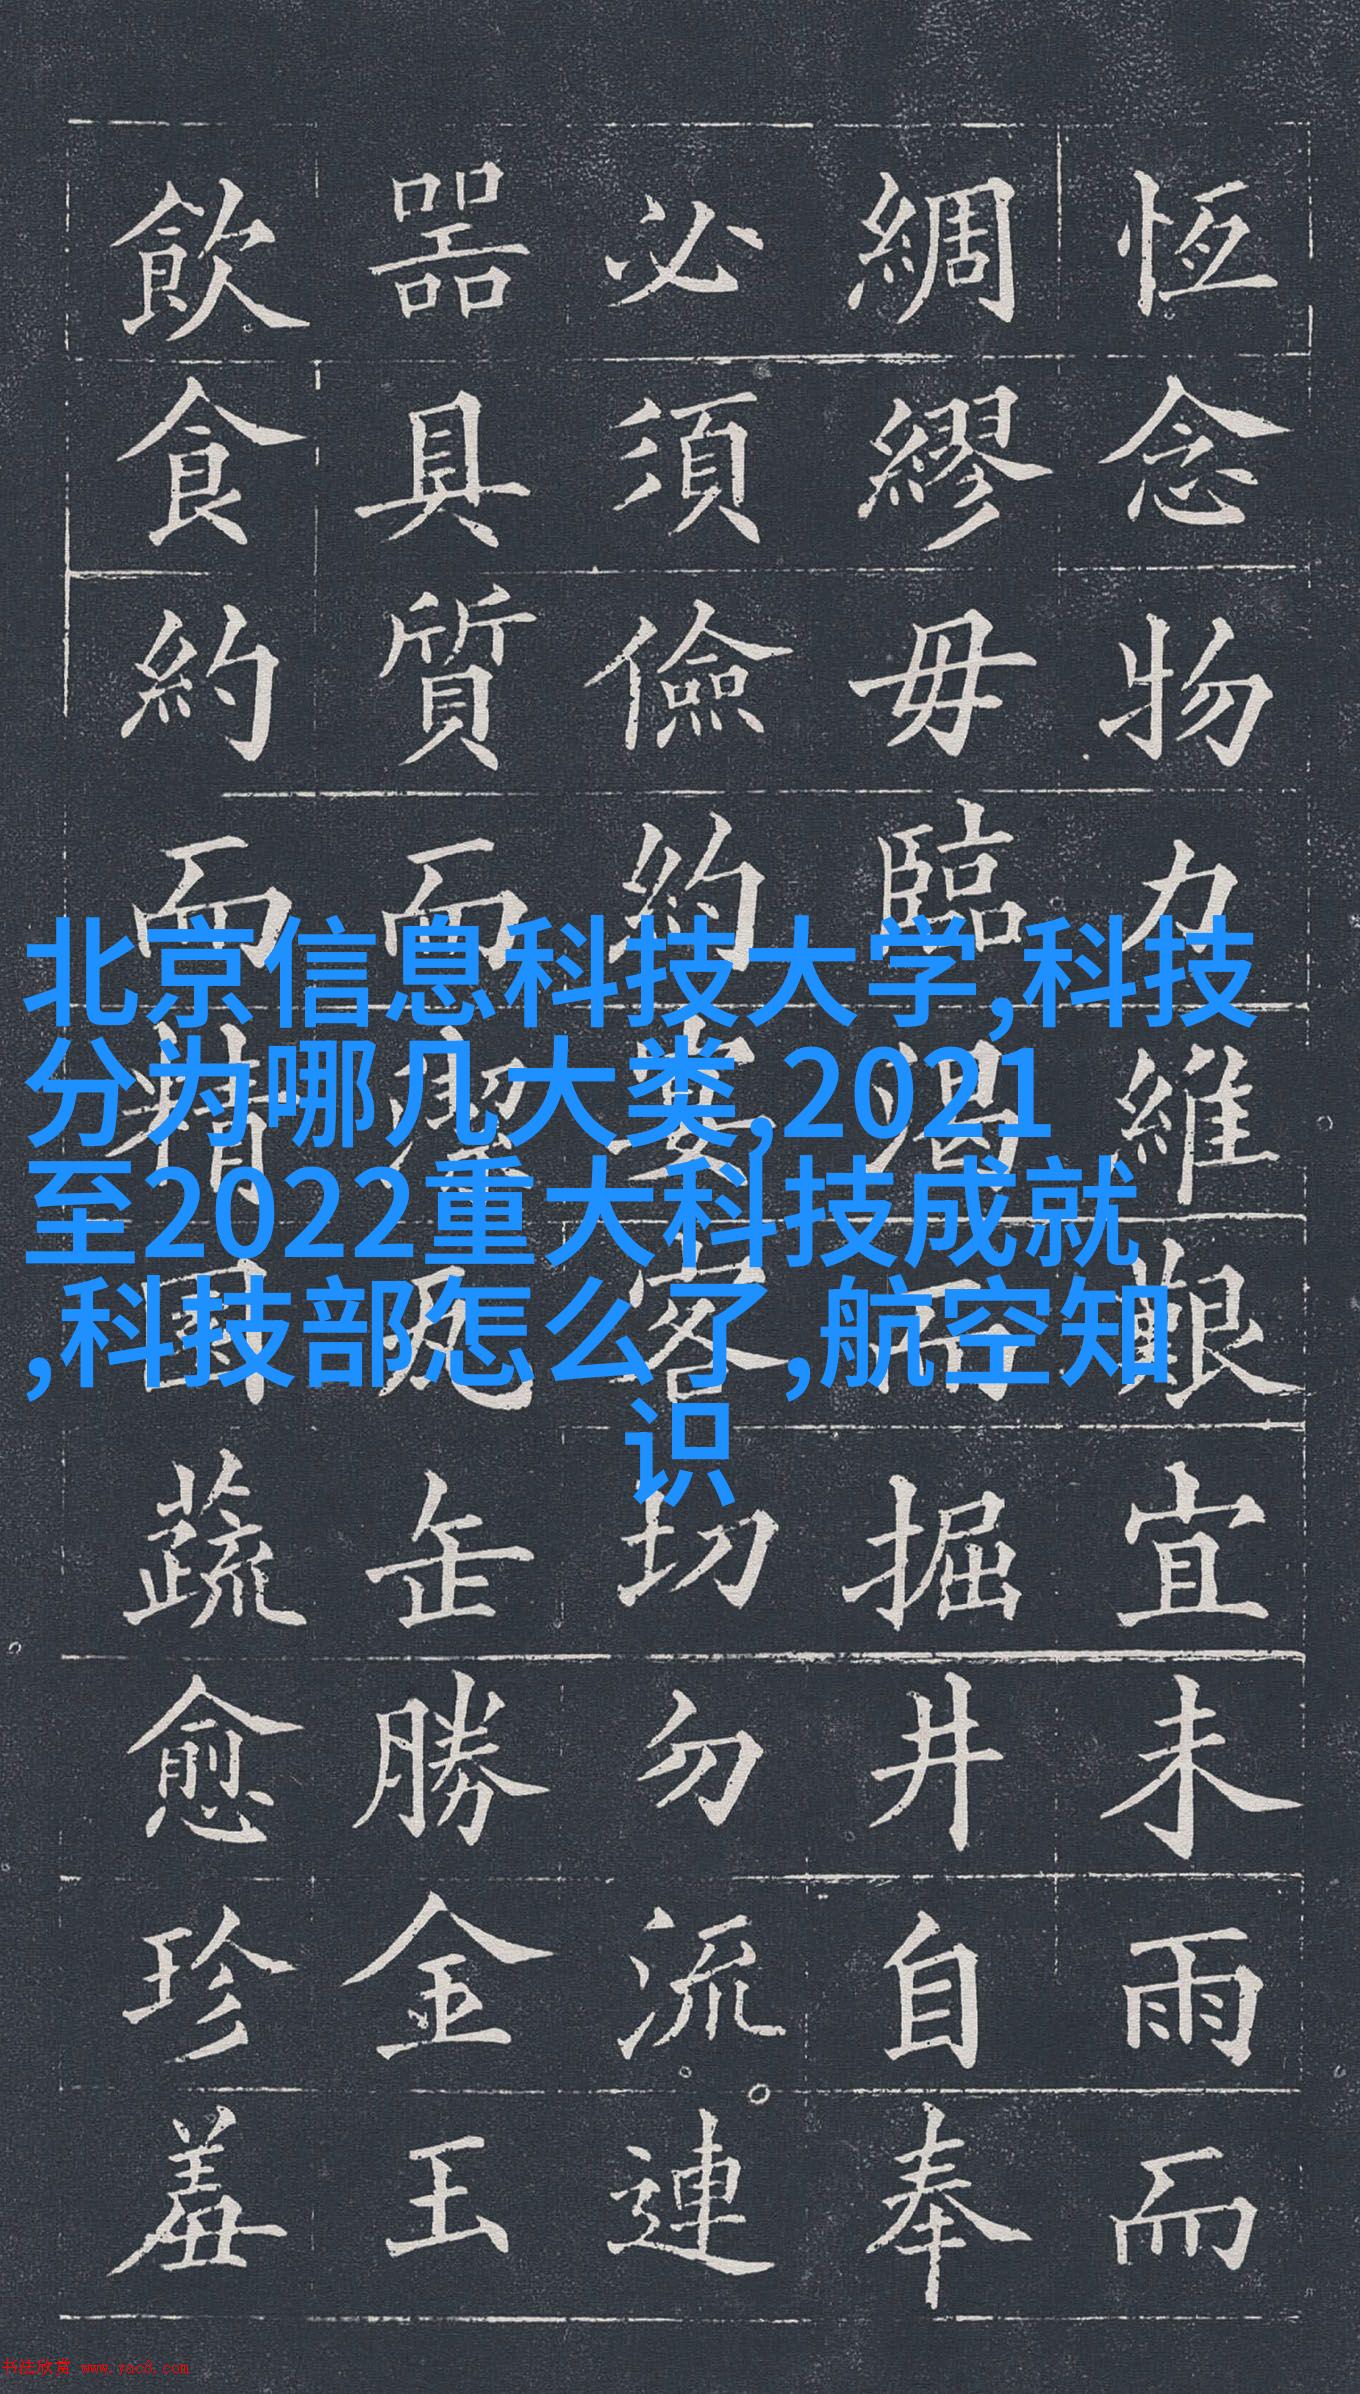 恆念物力維艱宜未雨而
綢繆毋臨渴而掘井自奉
必須儉約宴客切勿流連
器具質而潔瓦缶勝金玉
飲食約而精園蔬愈珍羞
北京信息科技大学,科技
分为哪几大类,2021
至2022重大科技成就
,科技部怎么了,航空知
识
书法欣赏 www.yac8.com